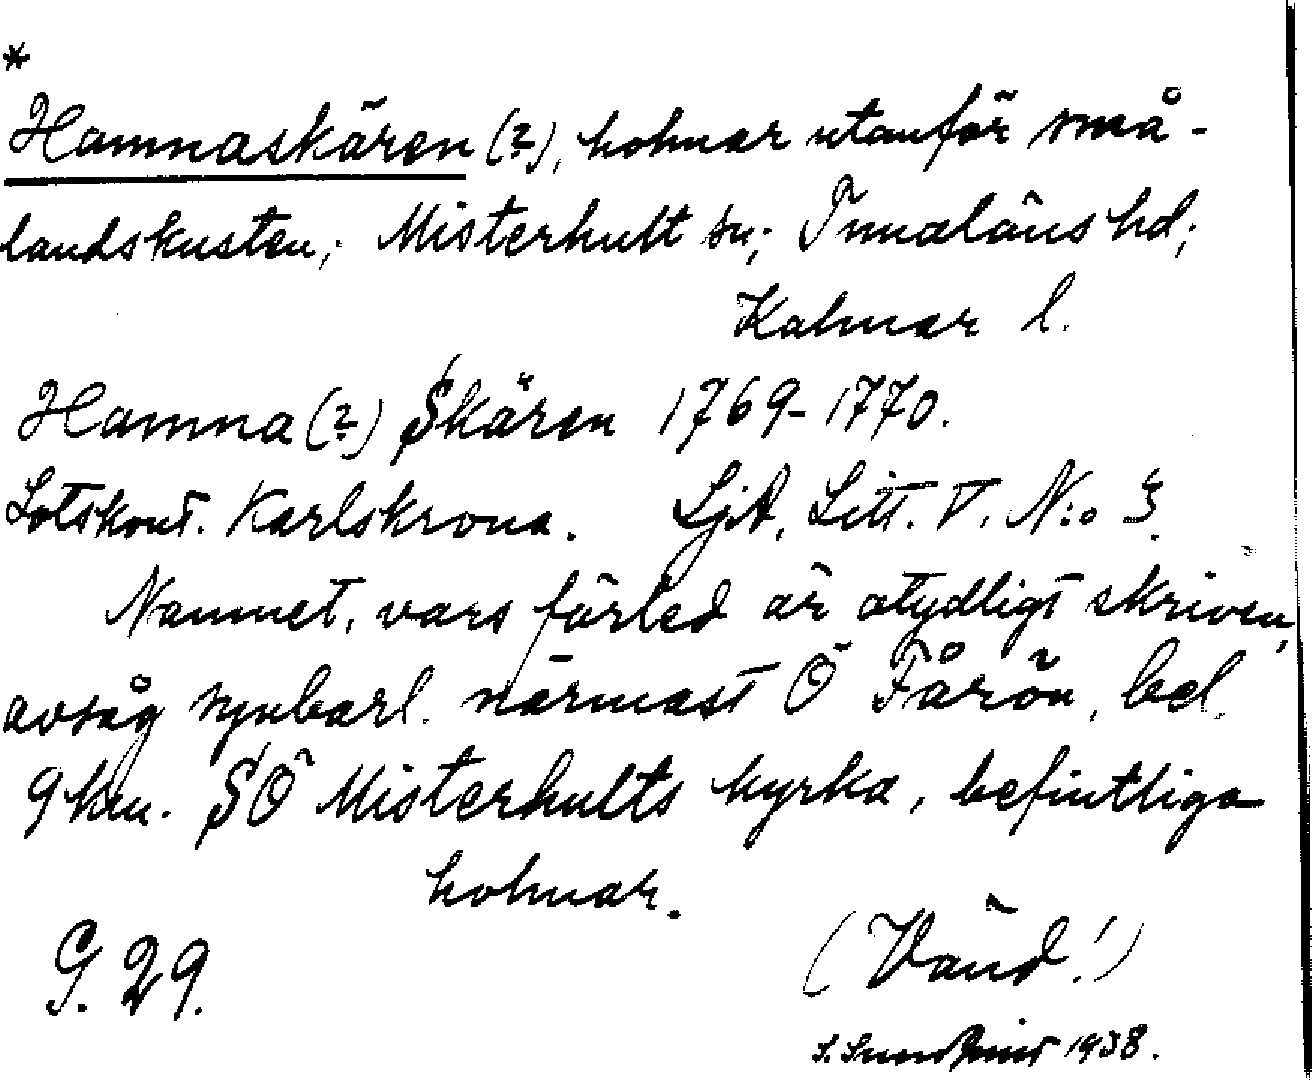 *
Hamnaskären (?), holmar utanför små-
landskusten; Misterhult sn; Tunaläns hd;
Kalmar l.
Hamna (?) Skären 1769-1770.
Lotskont. Karlskrona. SjA, Litt. V. N:o 3.
Namnet, vars förled är otydligt skriven,
avsåg synbarl. närmast Ö Fårön, bel.
9 km. SÖ Misterhults kyrka, befintliga
holmar.
(Vänd!)
G. 29.
1938.